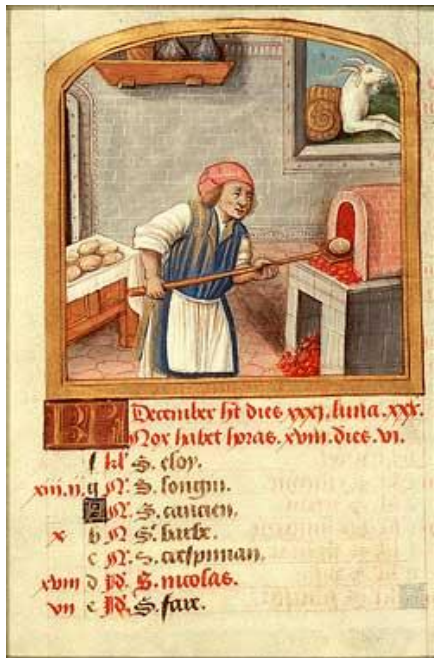 KL December ht dies xxxj. luna. xxx.
Nox habet horas. xviii. dies. vi.
f kl' S. eloy.
xiii. ii. g N. S. longin.
A N. S. caucien.
x b N S. barbe.
c N. S. crespinian.
xviii d Nd. S. nicolas.
vii e Nd. S. fare.